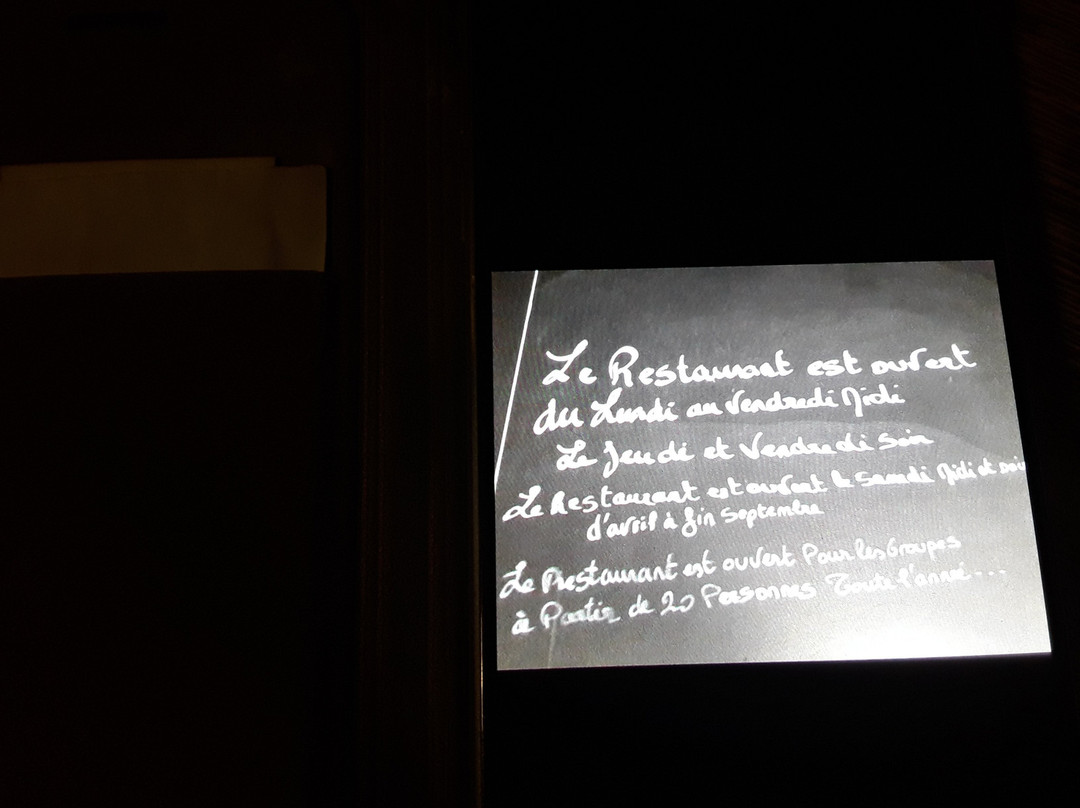 Le Restaurant est ouvert
du Lundi au Vendredi Midi
Le Jeudi et Vendredi Soir
Le Restaurant est ouvert le Samedi Midi et soir
d'avril à fin Septembre
Le Restaurant est ouvert Pour les Groupes
à Partir de 20 Personnes Toute l'année...